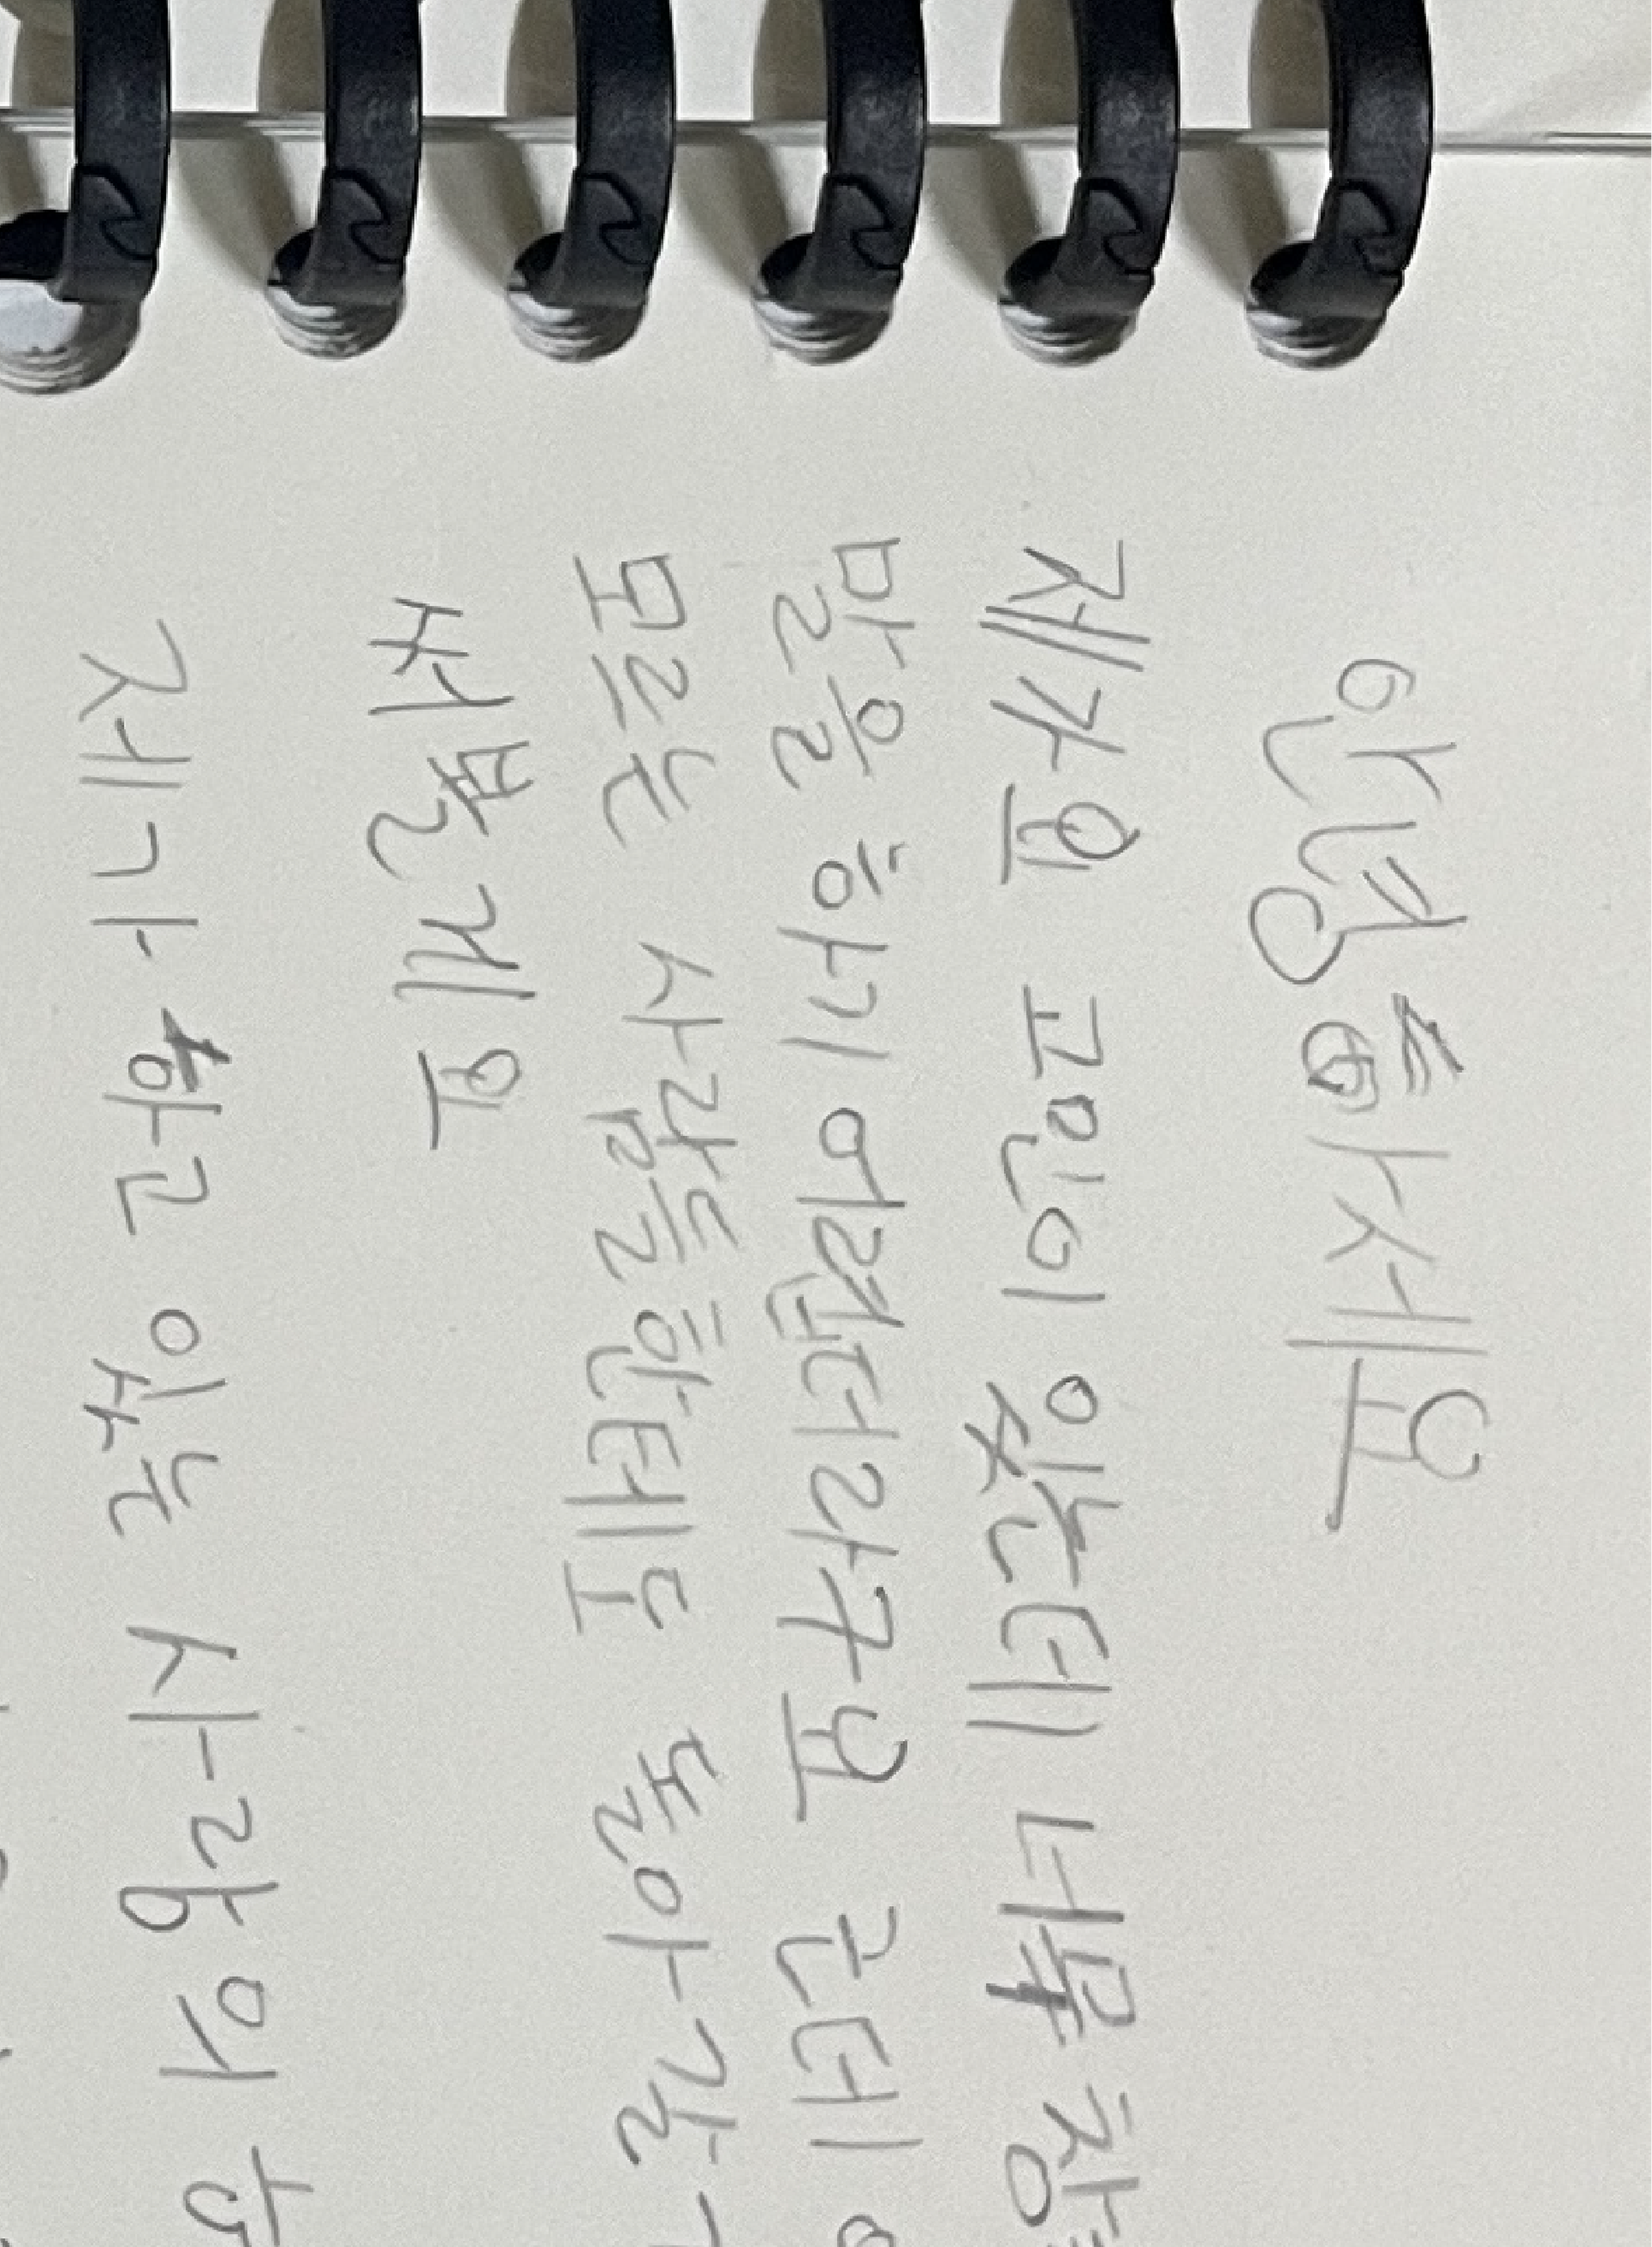 안녕하세요
제가요 고민이 있는데 너무
말을 하기 어렵더라구요 근데
모르는 사람들한테도 돌아갈
써볼게요
제가 하고 있는 사랑의